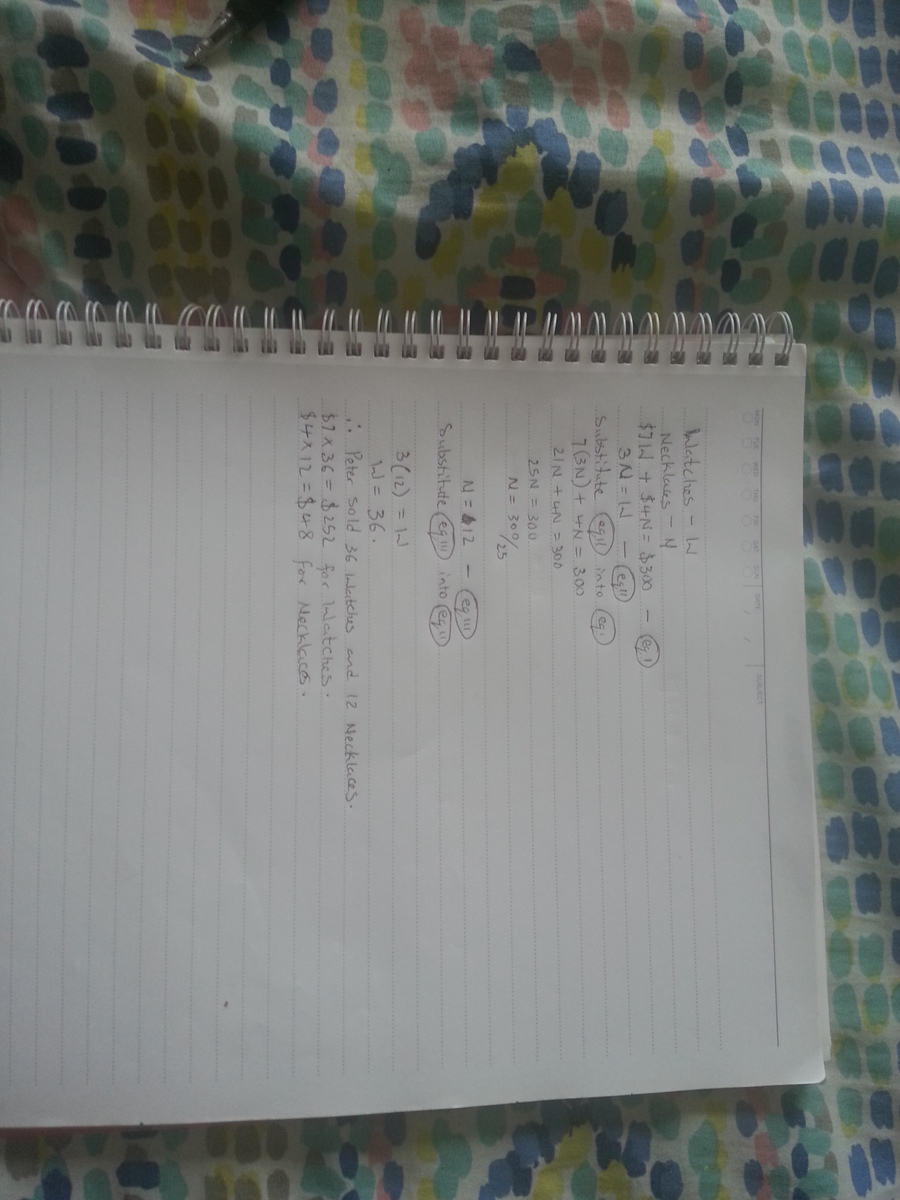 Watches - W
Necklaces - N
$7W + $4N = $300 - eq.I
3N = W - eq.II
Substitute eq.II into eq.I
7(3N) + 4N = 300
21N + 4N = 300
25N = 300
N = 300/25
N = 12 - eq.III
Substitute eq.III into eq.II
3(12) = W
W = 36.
∴ Peter sold 36 Watches and 12 Necklaces.
$7 x 36 = $252 for Watches.
$4 x 12 = $48 for Necklaces.